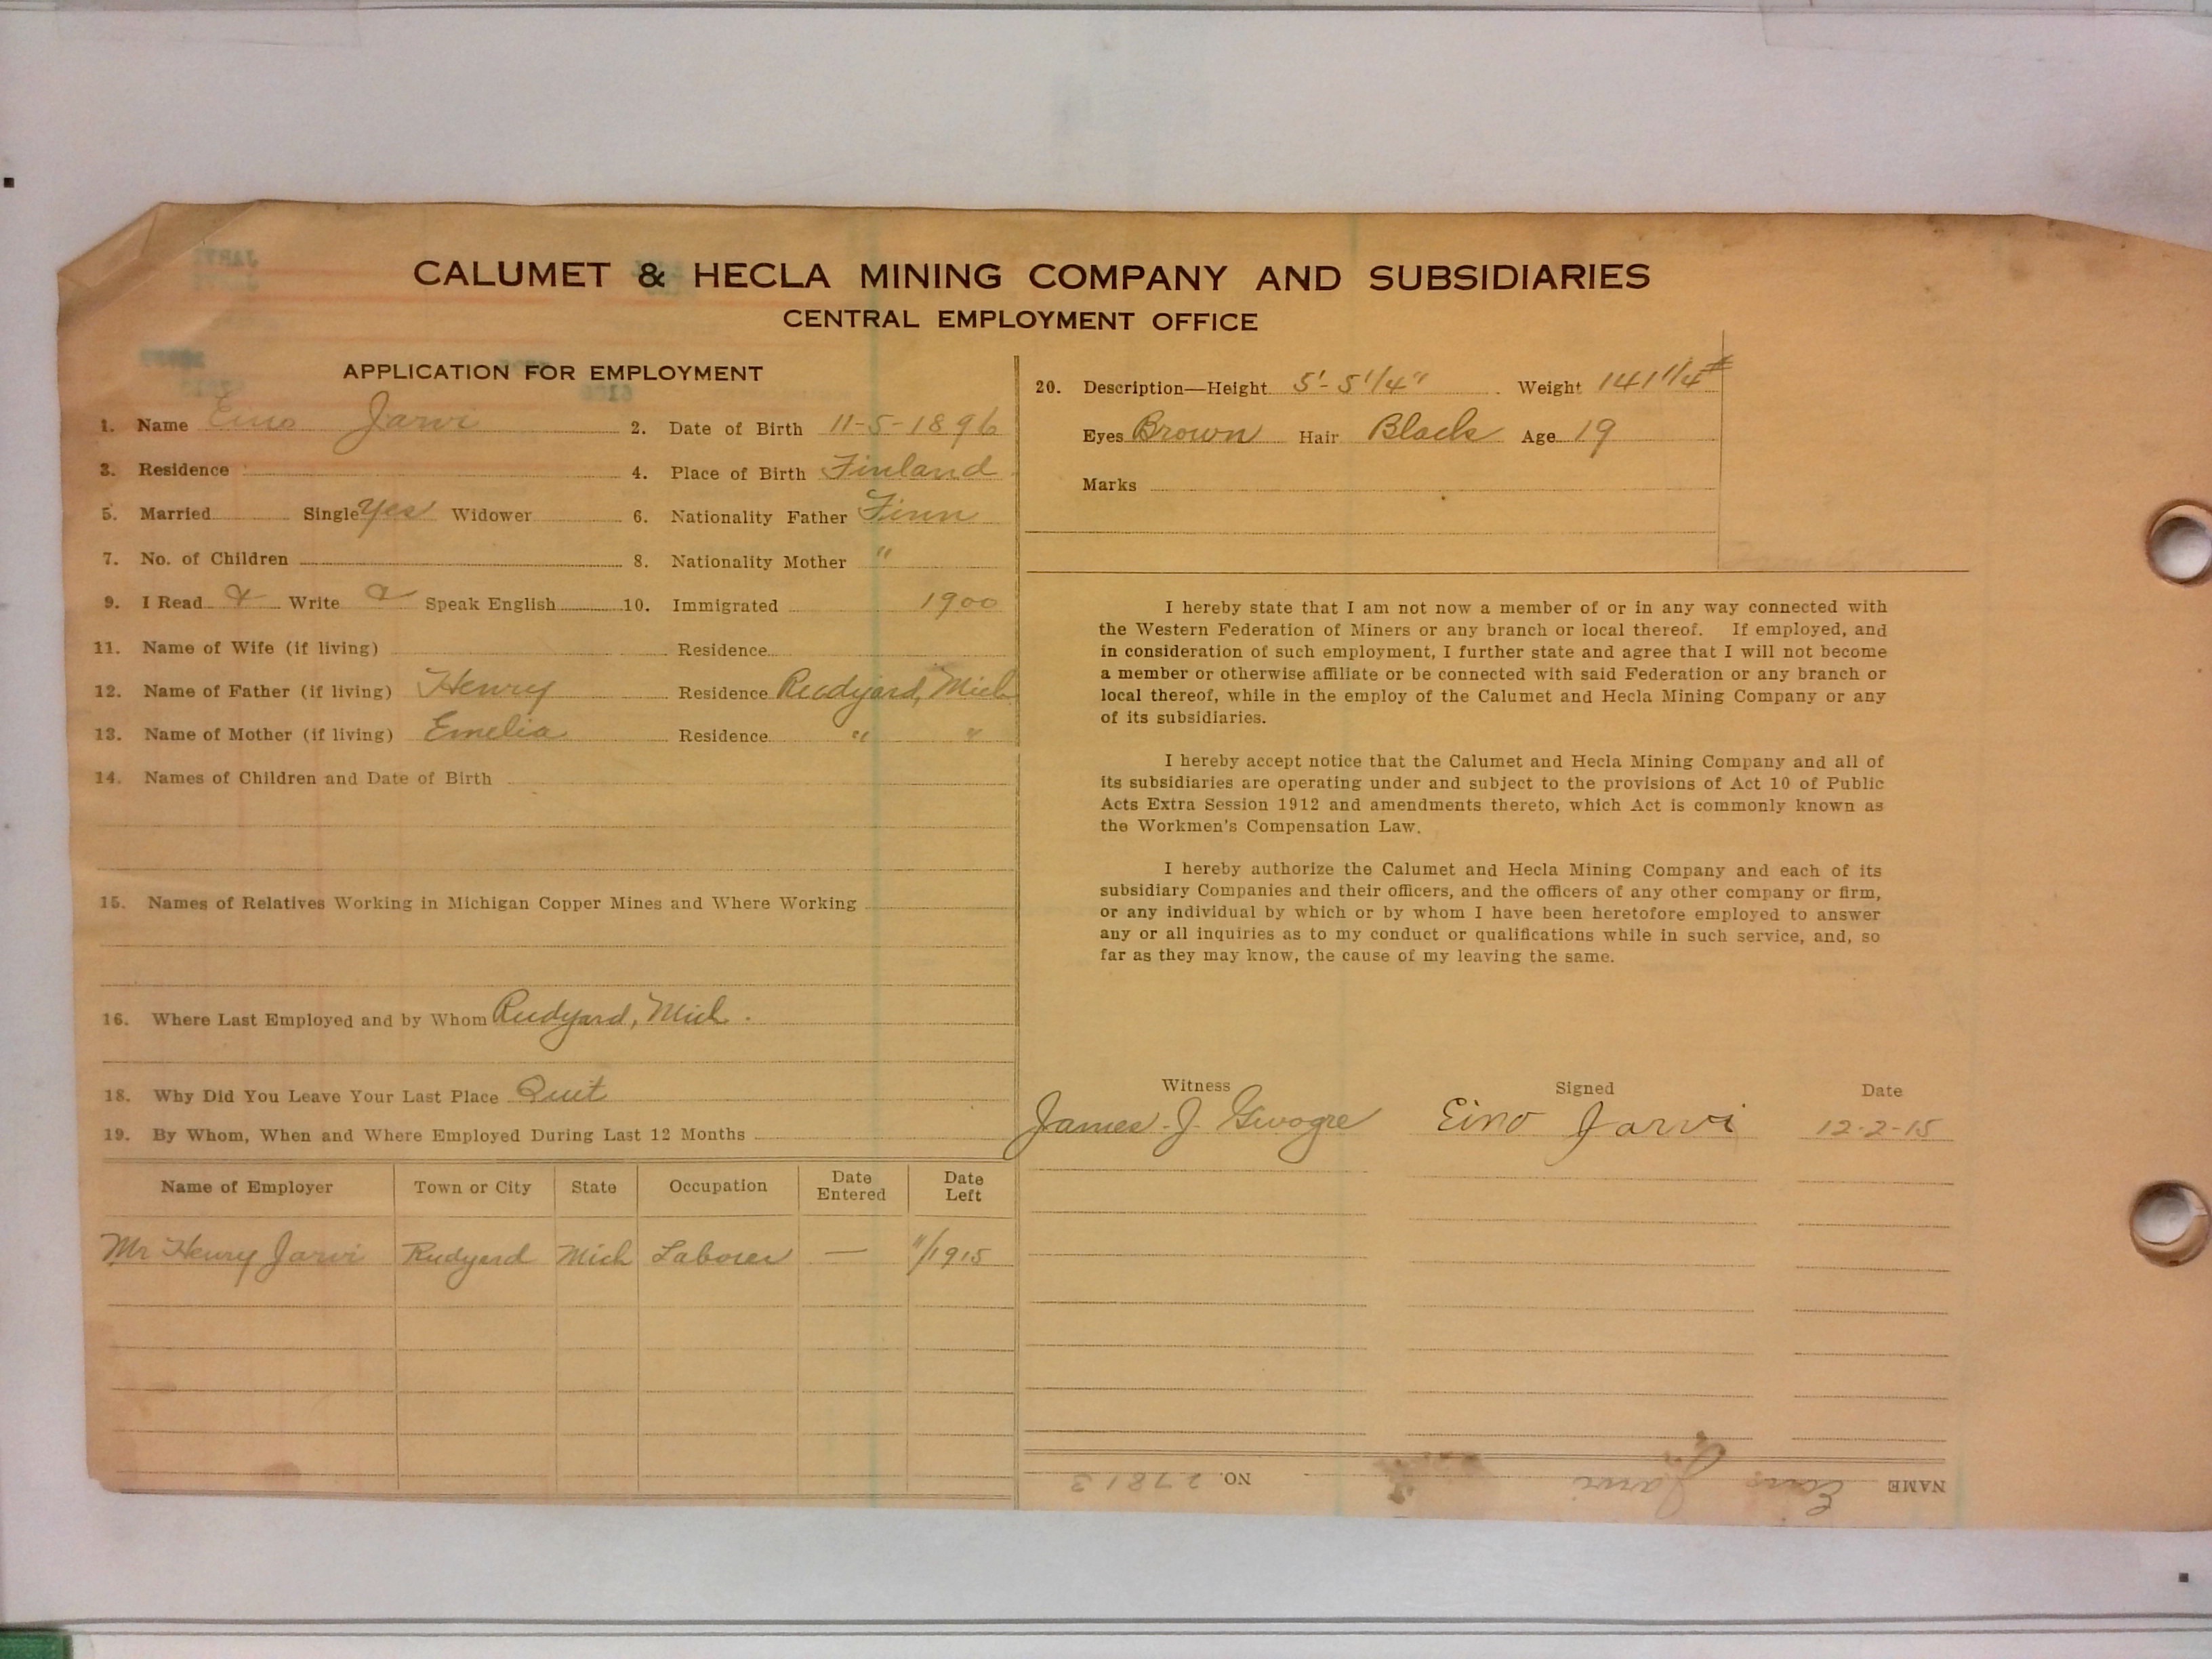 CALUMET & HECLA MINING COMPANY AND SUBSIDIARIES
CENTRAL EMPLOYMENT OFFICE
APPLICATION FOR EMPLOYMENT
1. Name Eino Jarvi 2. Date of Birth 11-5-1896
3. Residence 4. Place of Birth Finland
5. Married Single Yes Widower 6. Nationality Father Finn
7. No. of Children 8. Nationality Mother "
9. I Read Write Speak English 10. Immigrated 1900
11. Name of Wife (if living) Residence
12. Name of Father (if living) Henry Residence Rudyard, Mich
13. Name of Mother (if living) Emelia Residence " "
14. Names of Children and Date of Birth
15. Names of Relatives Working in Michigan Copper Mines and Where Working
16. Where Last Employed and by Whom Rudyard, Mich.
18. Why Did You Leave Your Last Place Quit
19. By Whom, When and Where Employed During Last 12 Months
Name of Employer Town or City State Occupation Date Entered Date Left
Mr Henry Jarvi Rudyard Mich Laborer — 11/1915
20. Description—Height 5'-5 1/4" Weight 141 1/4 #
Eyes Brown Hair Black Age 19
Marks
I hereby state that I am not now a member of or in any way connected with
the Western Federation of Miners or any branch or local thereof. If employed, and
in consideration of such employment, I further state and agree that I will not become
a member or otherwise affiliate or be connected with said Federation or any branch or
local thereof, while in the employ of the Calumet and Hecla Mining Company or any
of its subsidiaries.
I hereby accept notice that the Calumet and Hecla Mining Company and all of
its subsidiaries are operating under and subject to the provisions of Act 10 of Public
Acts Extra Session 1912 and amendments thereto, which Act is commonly known as
the Workmen's Compensation Law.
I hereby authorize the Calumet and Hecla Mining Company and each of its
subsidiary Companies and their officers, and the officers of any other company or firm,
or any individual by which or by whom I have been heretofore employed to answer
any or all inquiries as to my conduct or qualifications while in such service, and, so
far as they may know, the cause of my leaving the same.
Witness Signed Date
James J. Eino Jarvi 12-2-15
NAME Eino Jarvi NO. 27813